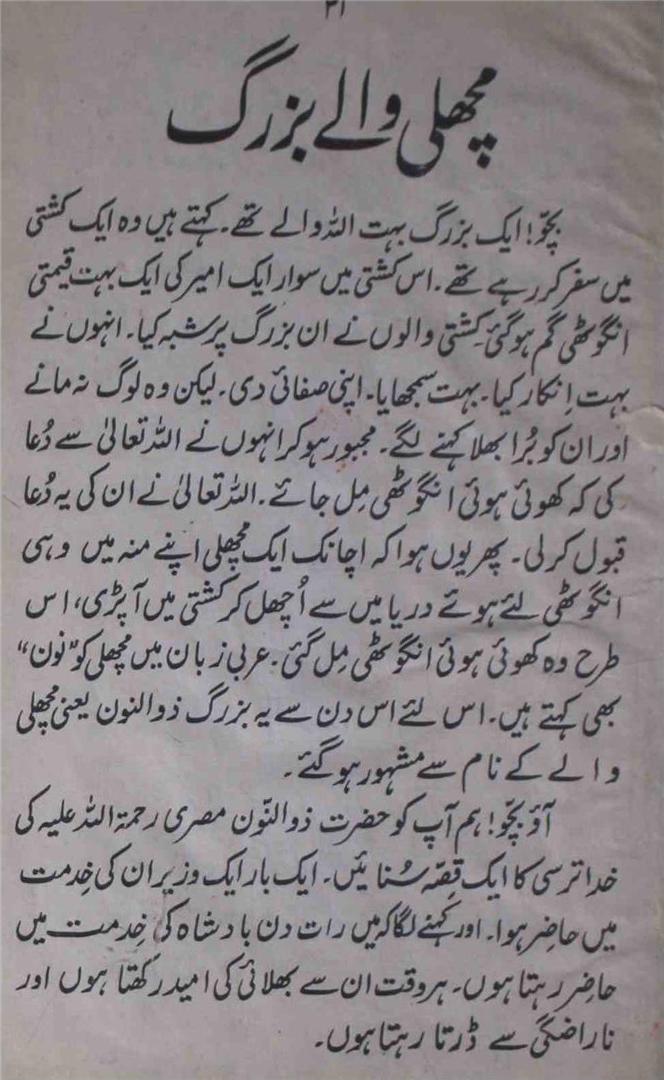 ۳۱
مچھلی والے بزرگ
بچّو! ایک بزرگ بہت اللہ والے تھے۔ کہتے ہیں وہ ایک کشتی
میں سفر کر رہے تھے۔ اس کشتی میں سوار ایک امیر کی ایک بہت قیمتی
انگوٹھی گم ہو گئی کشتی والوں نے ان بزرگ پر شبہ کیا۔ انہوں نے
بہت اِنکار کیا۔ بہت سمجھایا۔ اپنی صفائی دی۔ لیکن وہ لوگ نہ مانے
اور ان کو بُرا بھلا کہنے لگے۔ مجبور ہو کر انہوں نے اللہ تعالیٰ سے دُعا
کی کہ کھوئی ہوئی انگوٹھی مِل جائے۔ اللہ تعالیٰ نے ان کی یہ دُعا
قبول کر لی۔ پھر یوں ہوا کہ اچانک ایک مچھلی اپنے منہ میں وہی
انگوٹھی لئے ہوئے دریا میں سے اُچھل کر کشتی میں آ پڑی، اس
طرح وہ کھوئی ہوئی انگوٹھی مِل گئی۔ عربی زبان میں مچھلی کو ”نون“
بھی کہتے ہیں۔ اس لئے اس دن سے یہ بزرگ ذوالنون یعنی مچھلی
والے کے نام سے مشہور ہو گئے۔
آؤ بچّو! ہم آپ کو حضرت ذوالنّون مصری رحمۃ اللہ علیہ کی
خدا ترسی کا ایک قِصّہ سُنائیں۔ ایک بار ایک وزیر ان کی خِدمت
میں حاضِر ہوا۔ اور کہنے لگا کہ میں رات دن بادشاہ کی خِدمت میں
حاضِر رہتا ہوں۔ ہر وقت ان سے بھلائی کی امید رکھتا ہوں اور
ناراضگی سے ڈرتا رہتا ہوں۔